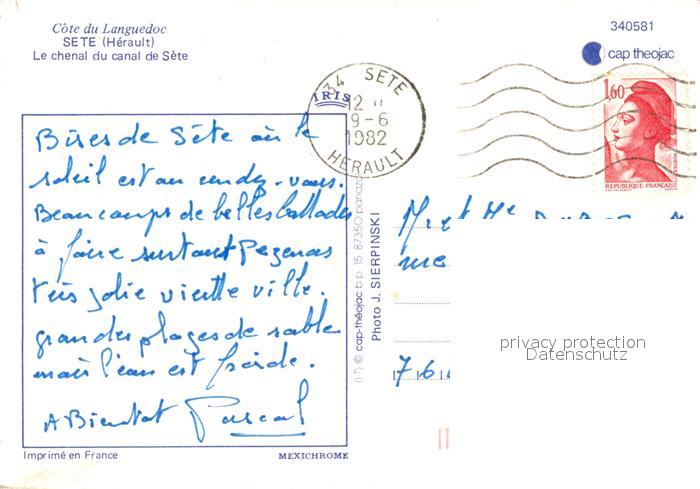 Côte du Languedoc
SETE (Hérault)
Le chenal du canal de Sète
340581
cap theojac
IRIS
34 SETE
12 H
9-6
1982
HERAULT
1,60
POSTES
REPUBLIQUE FRANÇAISE
Bises de Sète où le
soleil est au rendez-vous.
Beaucoups de belles ballades
à faire surtout Pezenas
très jolie vieille ville.
grandes plages de sable
mais l'eau est froide.
A Bientot Pascal
(I-T) © cap-théojac b.p. 15 87350 panazol
Photo J. SIERPINSKI
M et Me
7.6.
privacy protection
Datenschutz
Imprimé en France
MEXICHROME